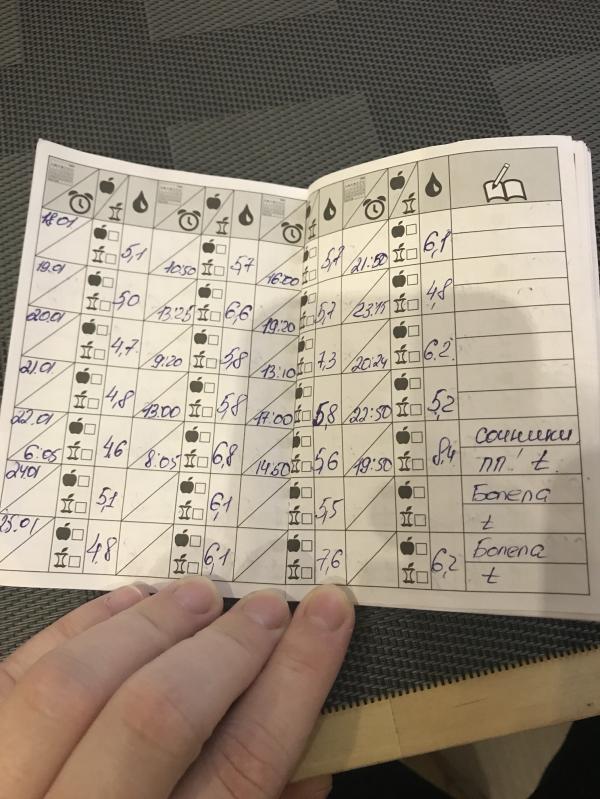 18.01 5,1 10:50 5,7 16:00 5,7 21:50 6,1
19.01 5,0 13:25 6,6 19:20 5,7 23:15 4,8
20.01 4,7 9:20 5,8 13:10 7,3 20:24 6.2
21.01 4,8 13:00 5,8 17:00 5,8 22:50 5,2
22.01 сочники
6:05 4,6 8:05 6,8 14:50 5,6 19:50 8,4 пп! t.
24.01 5,1 6,1 5,5 Болела
t
25.01 4,8 6,1 7,6 6,2 Болела
t